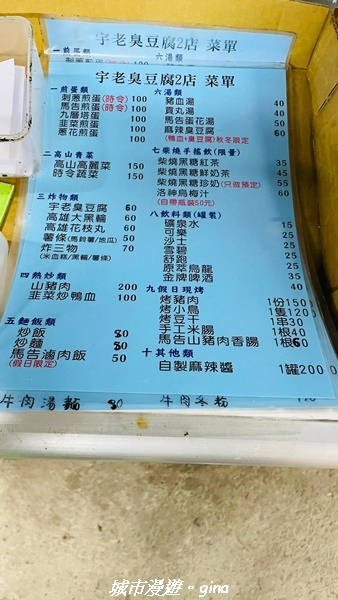 宇老臭豆腐2店 菜單
六湯類
宇老臭豆腐2店 菜單
一煎蛋類
刺蔥煎蛋(時令) 100
馬告煎蛋(時令) 100
九層塔蛋 100
韭菜煎蛋 100
蔥花煎蛋 100
二高山青菜
高山高麗菜 150
時令蔬菜 150
三炸物類
宇老臭豆腐 60
高雄大黑輪 60
高雄花枝丸 60
薯條(馬鈴薯/地瓜) 50
炸三物 70
(米血糕/黑輪/薯條)
四熱炒類
山豬肉 200
韭菜炒鴨血 100
五麵飯類
炒飯 80
炒麵 80
馬告滷肉飯 50
(假日限定)
六湯類
豬血湯 40
貢丸湯 40
馬告蛋花湯 50
麻辣臭豆腐 60
(鴨血+臭豆腐)秋冬限定
七柴燒手搖飲(限量)
柴燒黑糖紅茶 35
柴燒黑糖鮮奶茶 45
柴燒黑糖珍奶(只做預定) 55
洛神烏梅汁 45
(自帶瓶裝50元)
八飲料類(罐裝)
礦泉水 15
可樂 25
沙士 25
雪碧 25
舒跑 25
原萃烏龍 25
金牌啤酒 35
九假日現烤
烤豬肉 1份150
烤小鳥 1隻120
烤豆干 1串30
手工米腸 1根40
馬告山豬肉香腸 1根60
十其他類
自製麻辣醬 1罐200
牛肉湯麵 80
城市漫遊。gina